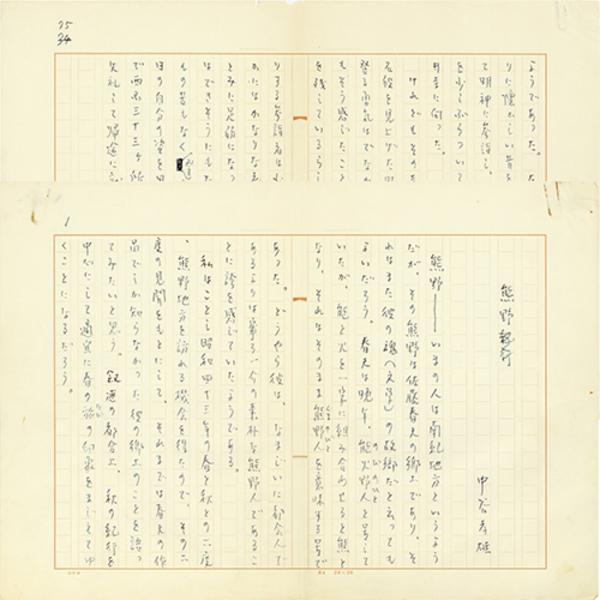 75
34
ようであった。
りた懐かしい昔
て明神に参詣し、
を少しぶらついて
けれどもその
石段を見上げた
登る勇気はでなか
もそう感じたこ
を残しているらし
りする参詣者は
かたはかなりな
とみた足弱になっ
はできそうにも
もの苦もなく
ほの自分の姿を
で西国三十三ヶ所
失礼して帰途に
1
熊野紀行
中谷孝雄
熊野――いまの人は南紀地方というよう
だが、その熊野は佐藤春夫の郷土であり、そ
れはまた彼の魂(文学)の故郷だと云っても
よいだろう。春夫は晩年、能火野人と号して
いたが、能と火を一字に組み合わせると熊と
なり、それはそのまま熊野人を意味する号で
あった。どうやら彼は、なまじいに都会人で
あるよりは寧ろ一介の素朴な熊野人であるこ
とに誇を感じていたようである。
私はことし昭和四十三年の春と秋との二度
、熊野地方を訪れる機会を得たので、その二
度の見聞をもとにして、それまでは春夫の作
品でしか知らなかった彼の郷土のことを語っ
てみたいと思う。叙述の都合上、秋の紀行を
中心にして適宜に春の旅の印象をまじえてゆ
くことになるだろう。